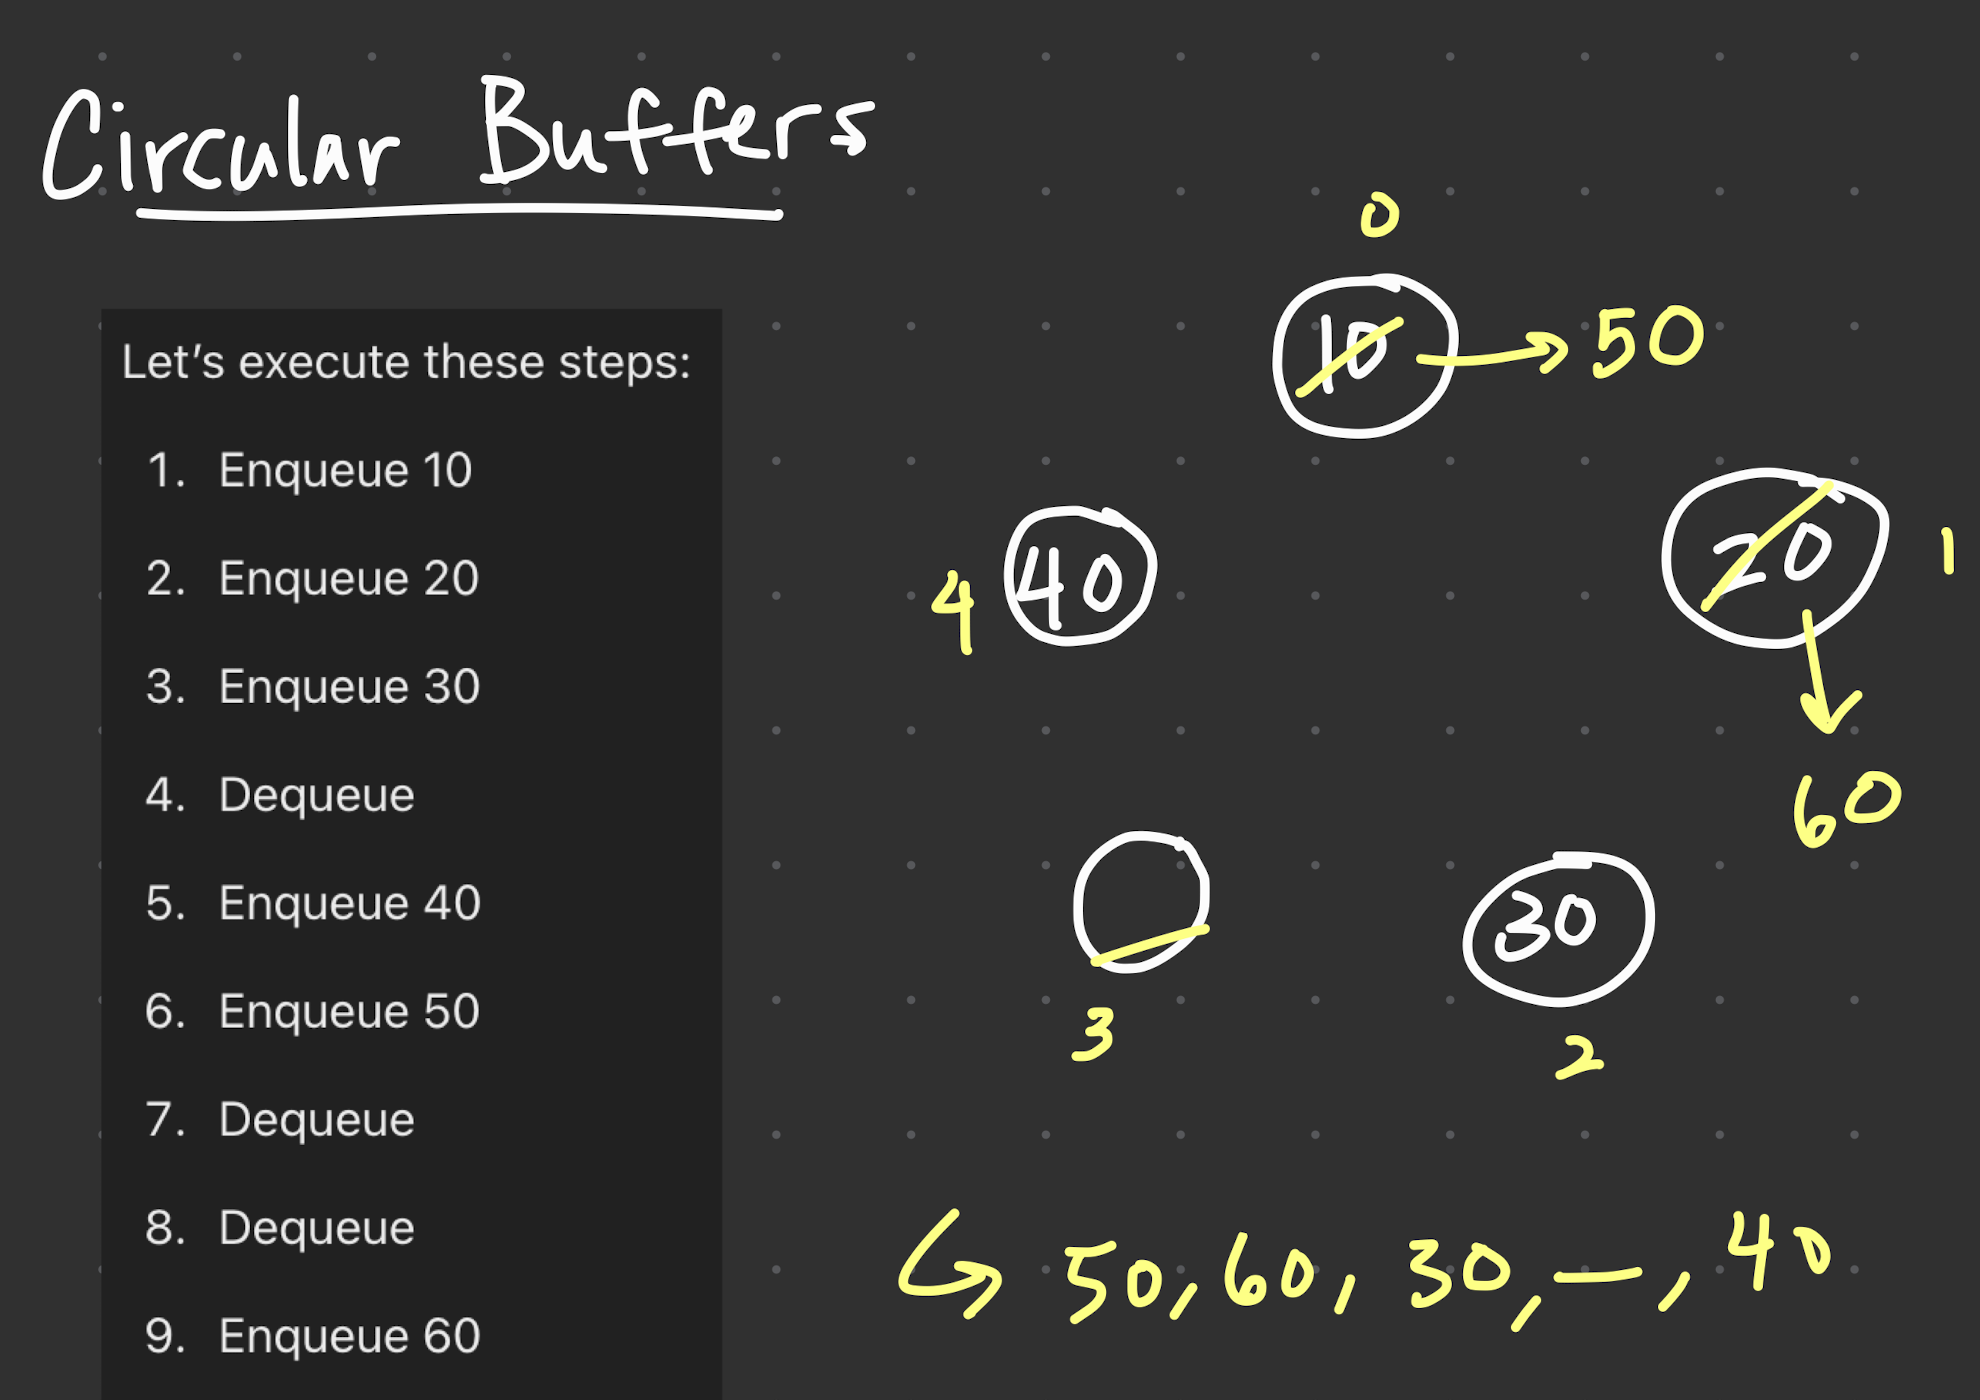 Circular Buffers
Let's execute these steps:
1. Enqueue 10
2. Enqueue 20
3. Enqueue 30
4. Dequeue
5. Enqueue 40
6. Enqueue 50
7. Dequeue
8. Dequeue
9. Enqueue 60
0
10 → 50
4 40
20 1
60
30
3
2
↳ 50, 60, 30, —, 40